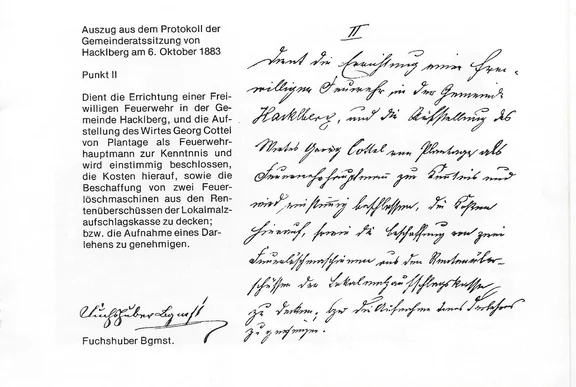 Auszug aus dem Protokoll der
Gemeinderatssitzung von
Hacklberg am 6. Oktober 1883
Punkt II
Dient die Errichtung einer Frei-
willigen Feuerwehr in der Ge-
meinde Hacklberg, und die Auf-
stellung des Wirtes Georg Cottel
von Plantage als Feuerwehr-
hauptmann zur Kenntnnis und
wird einstimmig beschlossen,
die Kosten hierauf, sowie die
Beschaffung von zwei Feuer-
löschmaschinen aus den Ren-
tenüberschüssen der Lokalmalz-
aufschlagskasse zu decken;
bzw. die Aufnahme eines Dar-
lehens zu genehmigen.
Fuchshuber Bgmst
Fuchshuber Bgmst.
II
Dient die Errichtung einer Frei-
willigen Feuerwehr in der Gemeinde
Hacklberg, und die Aufstellung des
Wirtes Georg Cottel von Plantage als
Feuerwehrhauptmann zur Kenntnis und
wird einstimmig beschlossen, die Kosten
hierauf, sowie die Beschaffung von zwei
Feuerlöschmaschinen aus den Rentenüber-
schüssen der Lokalmalzaufschlagskasse
zu decken, bzw die Aufnahme eines Darlehens
zu genehmigen.